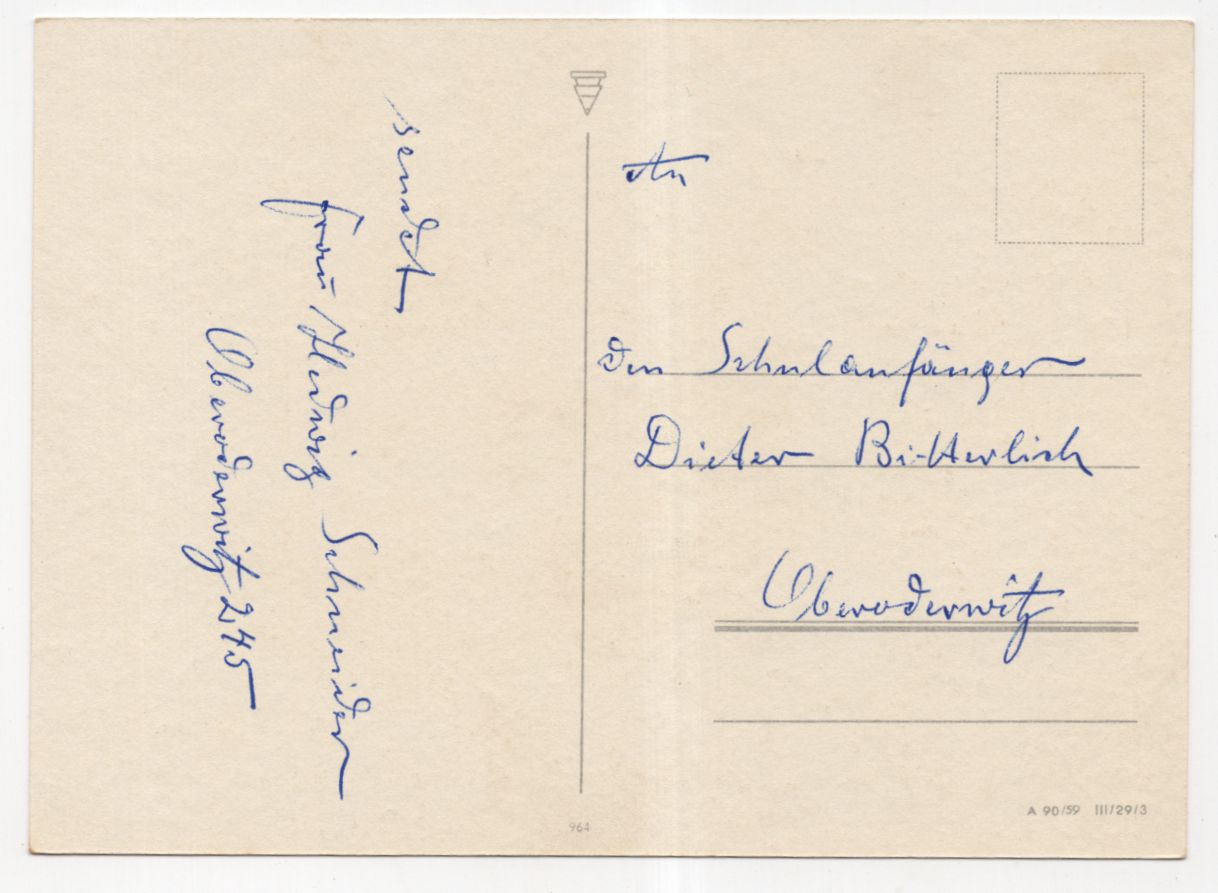 sendet
Frau Hedwig Schneider
Oberoderwitz 245
An
Den Schulanfänger
Dieter Bitterlich
Oberoderwitz
964
A 90/59 III/29/3